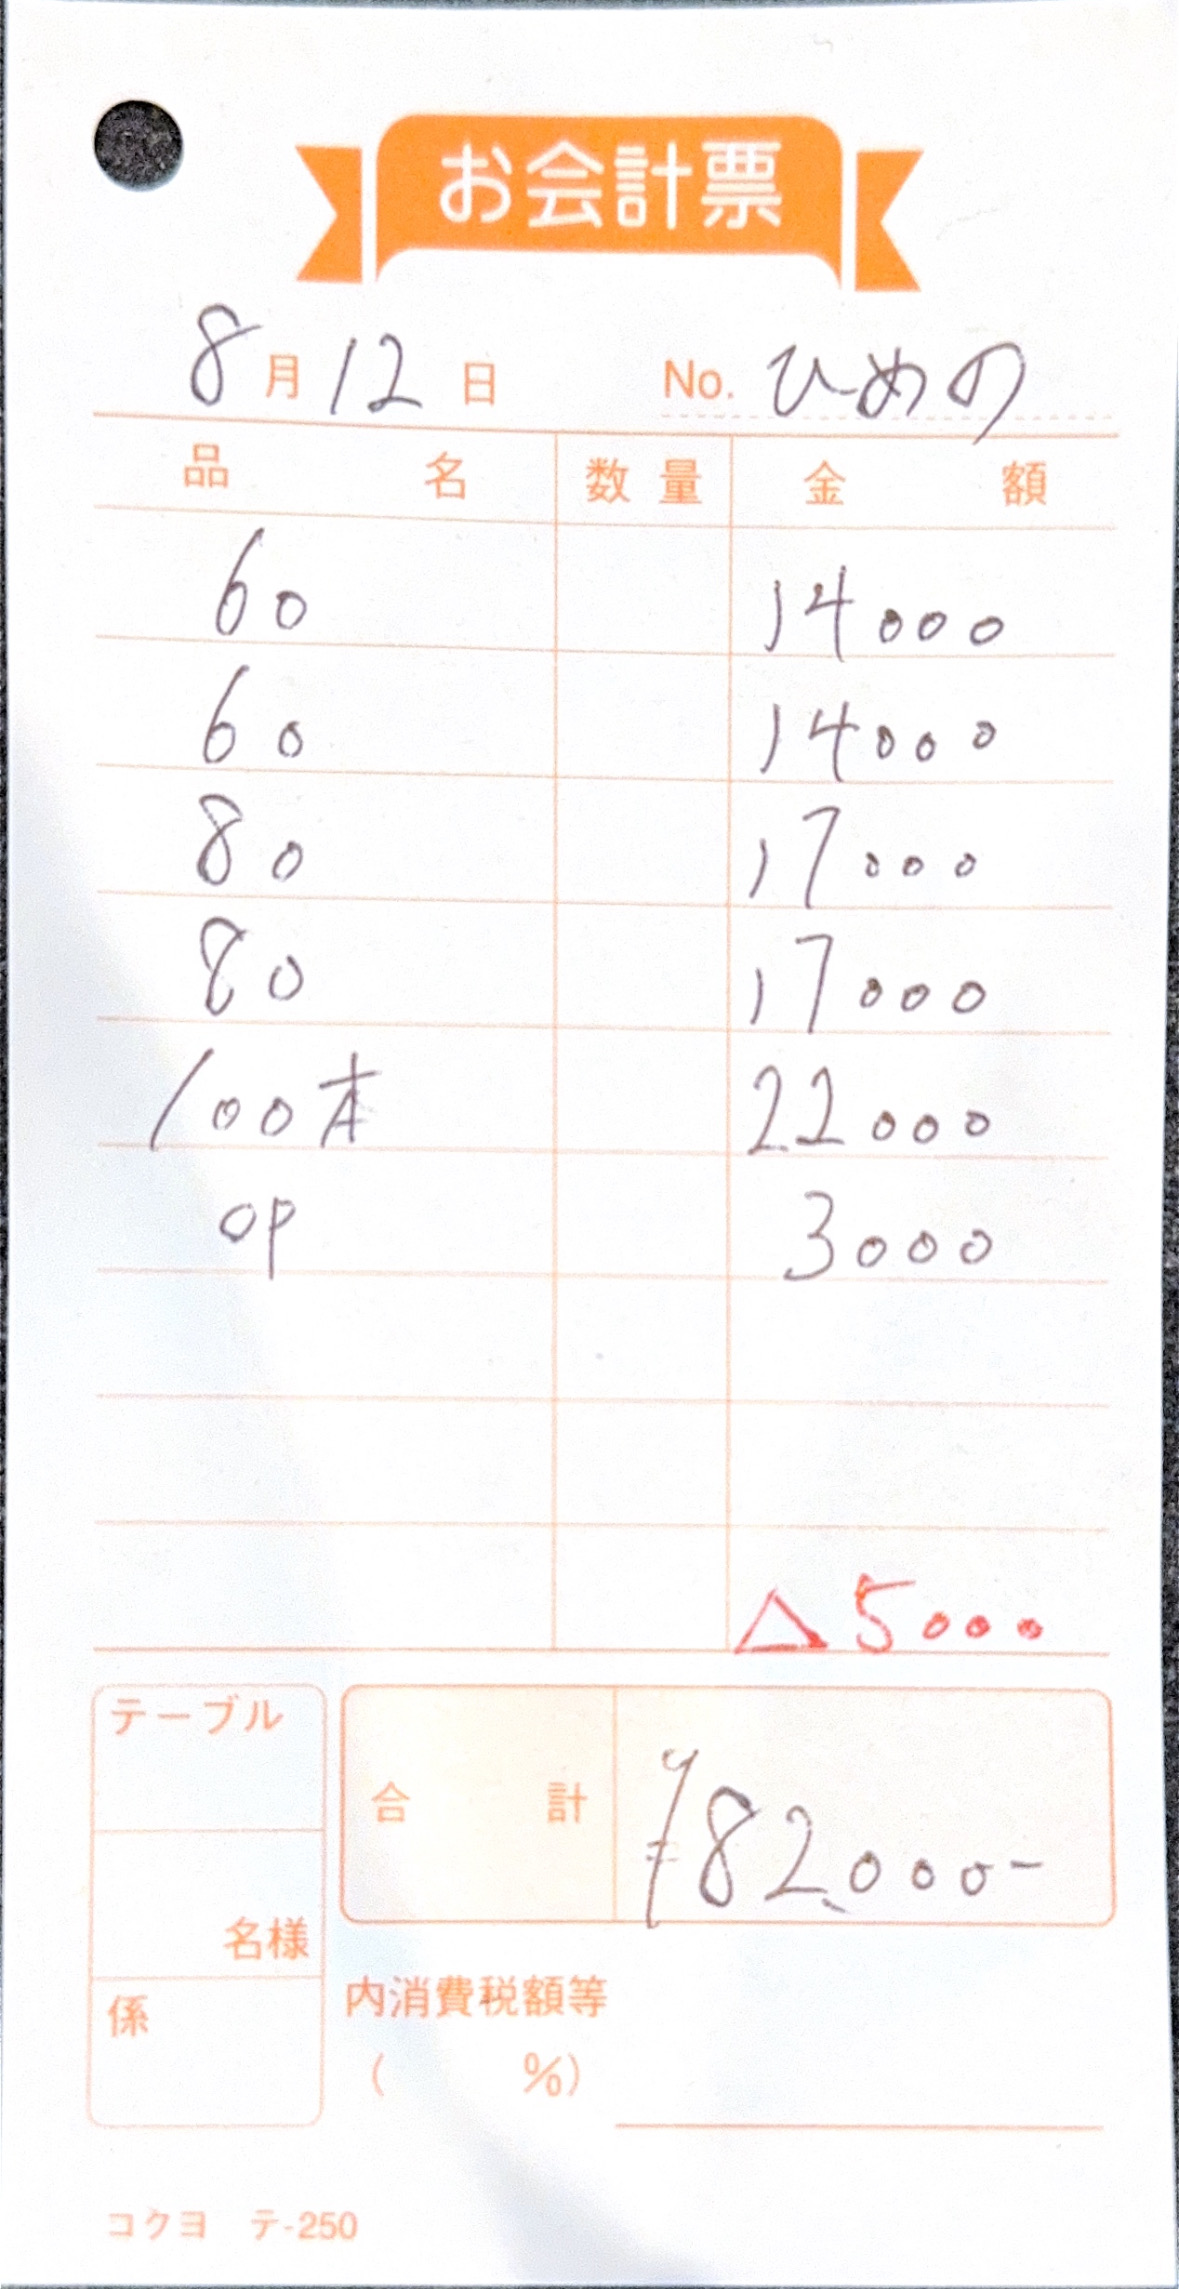 お会計票
8月12日 No. ひめの
品名 数量 金額
60 14000
60 14000
80 17000
80 17000
100本 22000
OP 3000
△5000
テーブル
合計 ¥82,000-
名様
係
内消費税額等
( %)
コクヨ テ-250